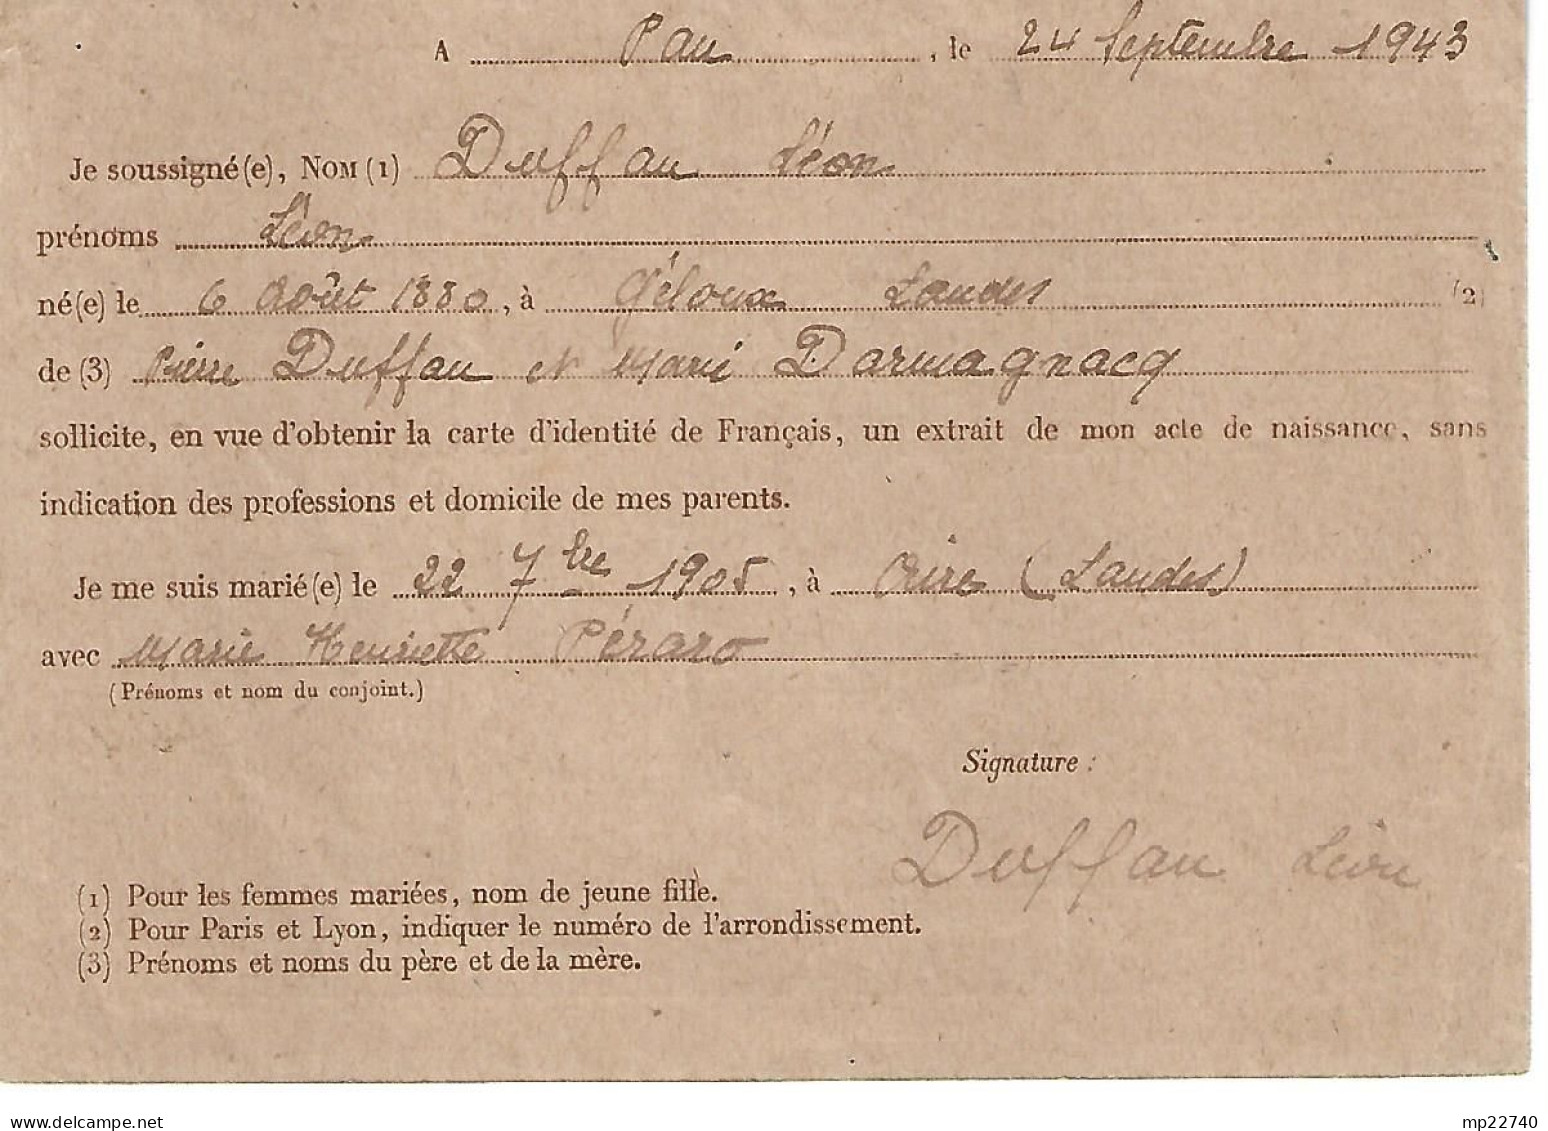 A Pau, le 24 Septembre 1943
Je soussigné(e), Nom (1) Duffau Léon
prénoms Léon
né(e) le 6 Août 1880, à Géloux Landes (2)
de (3) Pierre Duffau et Marie Darmagnacq
sollicite, en vue d'obtenir la carte d'identité de Français, un extrait de mon acte de naissance, sans
indication des professions et domicile de mes parents.
Je me suis marié(e) le 22 7bre 1905, à Aire (Landes)
avec Marie Henriette Péraro
(Prénoms et nom du conjoint.)
Signature :
Duffau Léon
(1) Pour les femmes mariées, nom de jeune fille.
(2) Pour Paris et Lyon, indiquer le numéro de l'arrondissement.
(3) Prénoms et noms du père et de la mère.
delcampe.net
mp22740